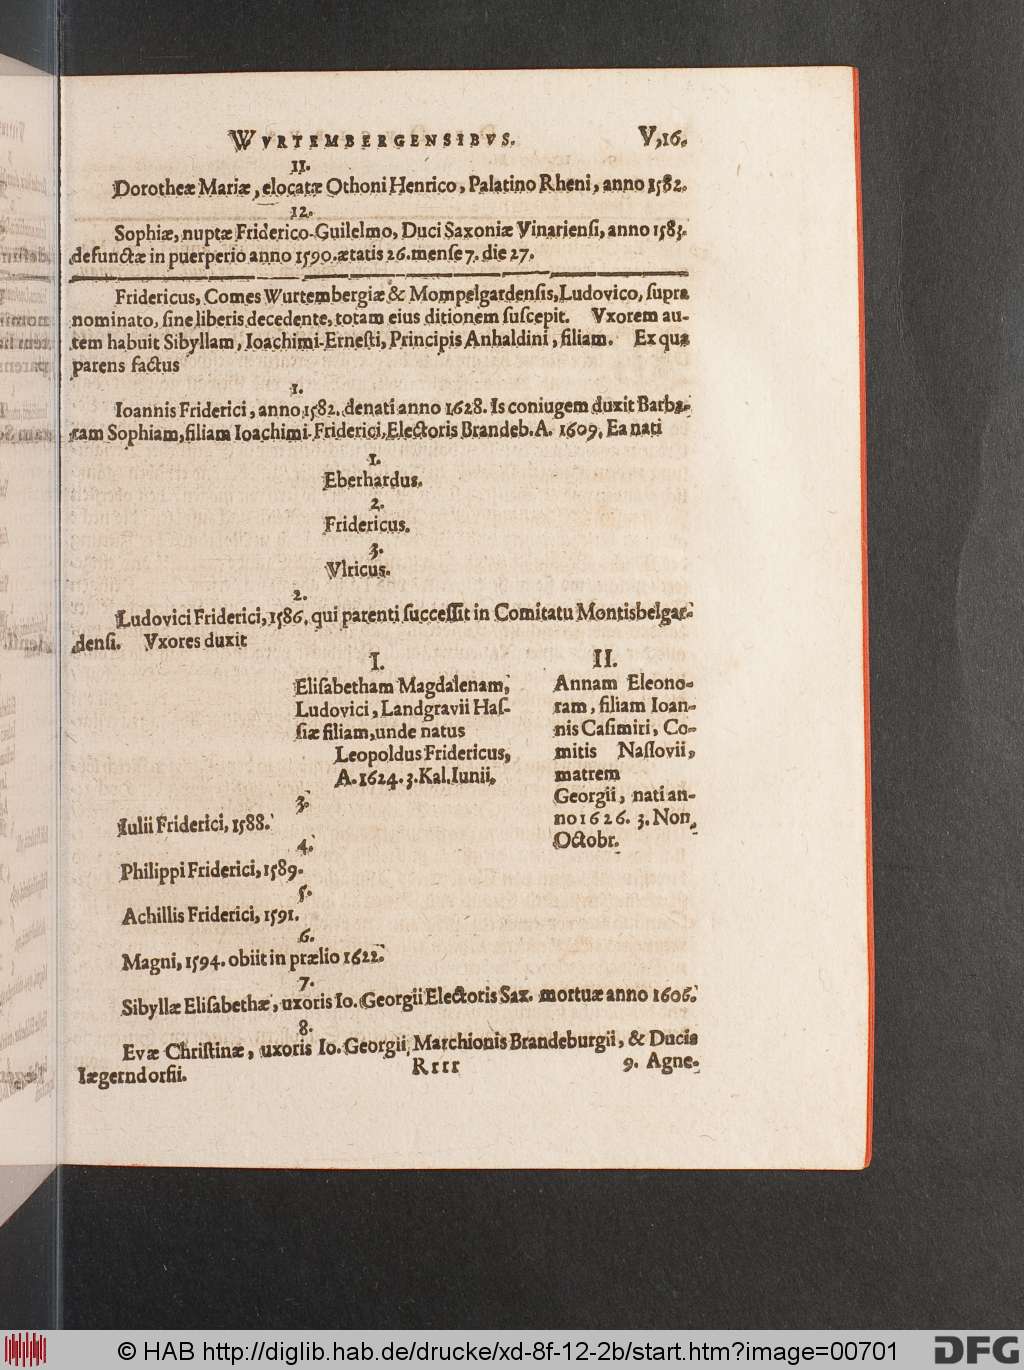 WVRTEMBERGENSIBVS. V,16.
11.
Dorotheæ Mariæ, elocatæ Othoni Henrico, Palatino Rheni, anno 1582.
12.
Sophiæ, nuptæ Friderico-Guilelmo, Duci Saxoniæ Vinariensi, anno 1583.
defunctæ in puerperio anno 1590. ætatis 26. mense 7. die 27.
Fridericus, Comes Wurtembergiæ & Mompelgardensis, Ludovico, supra
nominato, sine liberis decedente, totam eius ditionem suscepit. Vxorem au-
tem habuit Sibyllam, Ioachimi-Ernesti, Principis Anhaldini, filiam. Ex qua
parens factus
1.
Ioannis Friderici, anno 1582. denati anno 1628. Is coniugem duxit Barba-
ram Sophiam, filiam Ioachimi-Friderici, Electoris Brandeb. A. 1609. Ea nati
1.
Eberhardus.
2.
Fridericus.
3.
Vlricus.
2.
Ludovici Friderici, 1586. qui parenti successit in Comitatu Montisbelgar-
densi. Vxores duxit
I.
Elisabetham Magdalenam,
Ludovici, Landgravii Has-
siæ filiam, unde natus
Leopoldus Fridericus,
A. 1624. 3. Kal. Iunii.
II.
Annam Eleono-
ram, filiam Ioan-
nis Casimiri, Co-
mitis Nassovii,
matrem
Georgii, nati an-
no 1626. 3. Non.
Octobr.
3.
Iulii Friderici, 1588.
4.
Philippi Friderici, 1589.
5.
Achillis Friderici, 1591.
6.
Magni, 1594. obiit in prælio 1622.
7.
Sibyllæ Elisabethæ, uxoris Io. Georgii Electoris Sax. mortuæ anno 1606.
8.
Evæ Christinæ, uxoris Io. Georgii, Marchionis Brandeburgii, & Ducis
Iægerndorfii.
Rrrr 9. Agne-
© HAB http://diglib.hab.de/drucke/xd-8f-12-2b/start.htm?image=00701
DFG